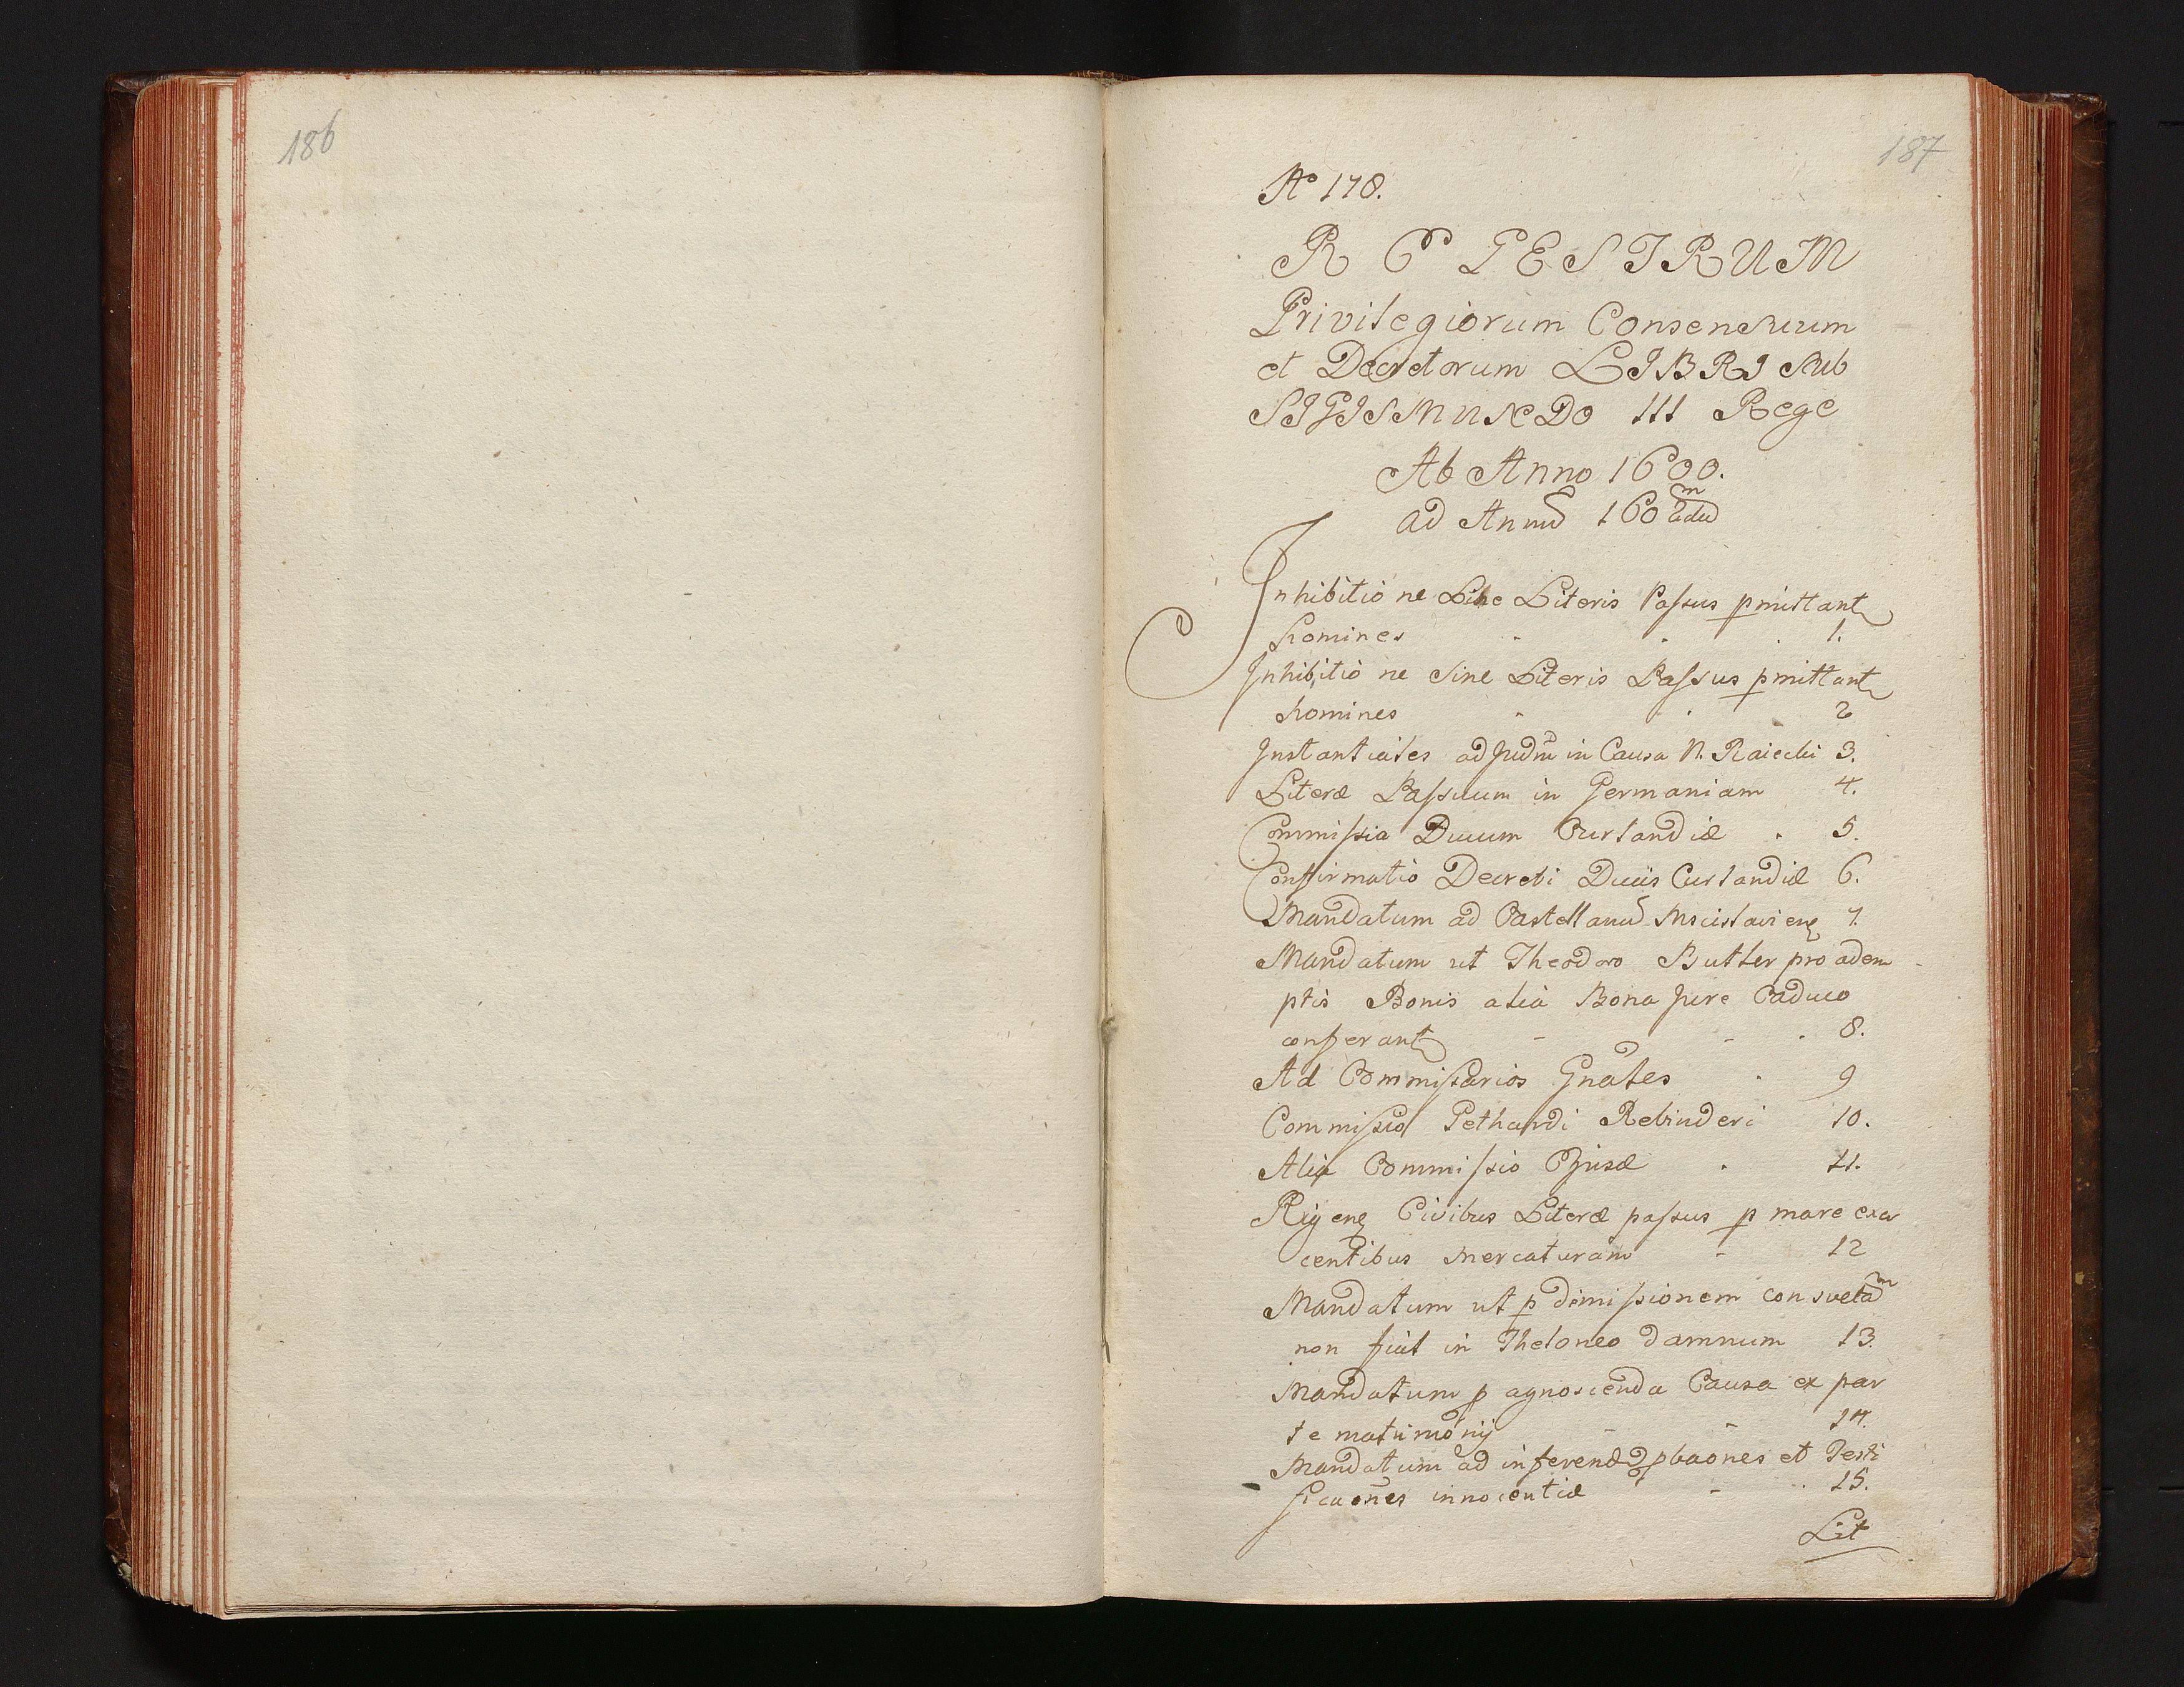 186
187
Aº 178.
REGESTRUM
Privilegiorum Consensuum
et Decretorum LIBRI sub
SIGISMUNDO III Rege
Ab Anno 1600.
ad Annũ
Inhibitio ne Sine Literis Passus pmittant
homines - - . 1.
Inhibitio ne sine Literis Passus pmittant
homines - - 2
Instantiales ad Judm in Causa N. Raiecki 3.
Literæ Passuum in Germaniam 4.
Commissia Ducum Curlandiæ . 5.
Confirmatio Decreti Ducis Curlandiæ 6.
Mandatum ad Castellanũ Mscislavien 7.
Mandatum ut Theodoro Butler pro adem
ptis Bonis alia Bona Jure Caduco
conferant - - . 8.
Ad Commissarios Gnales . 9
Commissio Gethardi Rebinderi 10.
Alia Commissio . 11.
Rigen Civibus Literæ passus p mare exer
centibus mercaturam - 12
Mandatum ut p dimissionem consvetãm
non fiat in Theloneo damnum 13.
Mandatum p agnoscenda Causa ex par
te matrimonij - - 14.
Mandatum ad inferend pbaones et Testi
ficaones innocentiæ - .. 15.
Lit